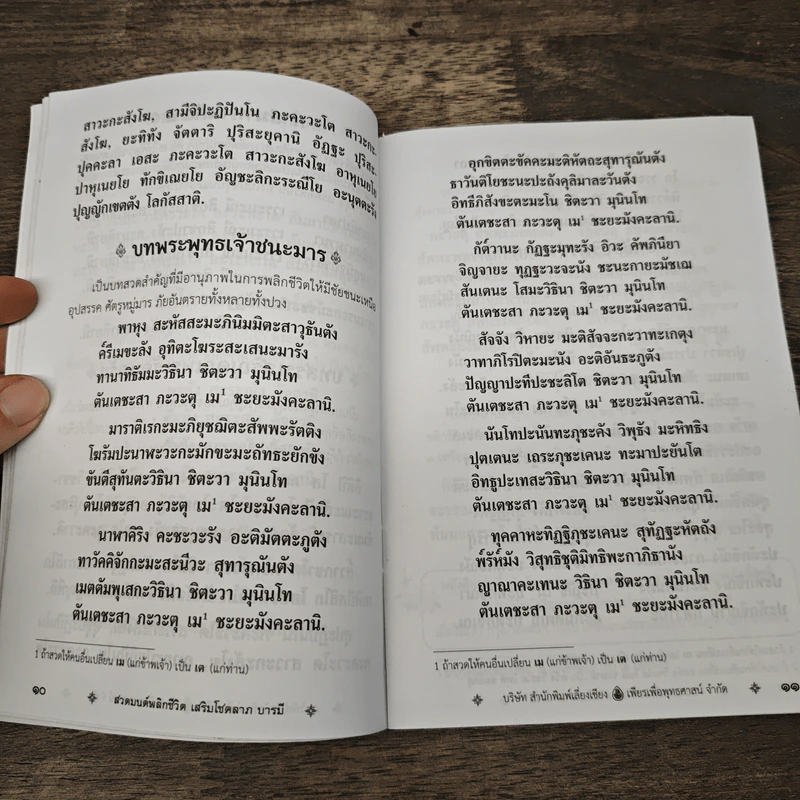 สาวะกะสังโฆ, สามีจิปะฏิปันโน ภะคะวะโต สาวะกะ-
สังโฆ, ยะทิทัง จัตตาริ ปุริสะยุคานิ อัฏฐะ ปุริสะ-
ปุคคะลา เอสะ ภะคะวะโต สาวะกะสังโฆ อาหุเนยโย
ปาหุเนยโย ทักขิเณยโย อัญชะลิกะระณีโย อะนุตตะรัง
ปุญญักเขตตัง โลกัสสาติ.
บทพระพุทธเจ้าชนะมาร
เป็นบทสวดสำคัญที่มีอานุภาพในการพลิกชีวิตให้มีชัยชนะเหนือ
อุปสรรค ศัตรูหมู่มาร ภัยอันตรายทั้งหลายทั้งปวง
พาหุง สะหัสสะมะภินิมมิตะสาวุธันตัง
ค๎รีเมขะลัง อุทิตะโฆระสะเสนะมารัง
ทานาทิธัมมะวิธินา ชิตะวา มุนินโท
ตันเตชะสา ภะวะตุ เม¹ ชะยะมังคะลานิ.
มาราติเรกะมะภิยุชฌิตะสัพพะรัตติง
โฆรัมปะนาฬะวะกะมักขะมะถัทธะยักขัง
ขันตีสุทันตะวิธินา ชิตะวา มุนินโท
ตันเตชะสา ภะวะตุ เม¹ ชะยะมังคะลานิ.
นาฬาคิริง คะชะวะรัง อะติมัตตะภูตัง
ทาวัคคิจักกะมะสะนีวะ สุทารุณันตัง
เมตตัมพุเสกะวิธินา ชิตะวา มุนินโท
ตันเตชะสา ภะวะตุ เม¹ ชะยะมังคะลานิ.
1 ถ้าสวดให้คนอื่นเปลี่ยน เม (แก่ข้าพเจ้า) เป็น เต (แก่ท่าน)
๑๐ สวดมนต์พลิกชีวิต เสริมโชคลาภ บารมี
อุกขิตตะขัคคะมะติหัตถะสุทารุณันตัง
ธาวันติโยชะนะปะถังคุลิมาละวันตัง
อิทธีภิสังขะตะมะโน ชิตะวา มุนินโท
ตันเตชะสา ภะวะตุ เม¹ ชะยะมังคะลานิ.
กัต๎วานะ กัฏฐะมุทะรัง อิวะ คัพภินียา
จิญจายะ ทุฏฐะวะจะนัง ชะนะกายะมัชเฌ
สันเตนะ โสมะวิธินา ชิตะวา มุนินโท
ตันเตชะสา ภะวะตุ เม¹ ชะยะมังคะลานิ.
สัจจัง วิหายะ มะติสัจจะกะวาทะเกตุง
วาทาภิโรปิตะมะนัง อะติอันธะภูตัง
ปัญญาปะทีปะชะลิโต ชิตะวา มุนินโท
ตันเตชะสา ภะวะตุ เม¹ ชะยะมังคะลานิ.
นันโทปะนันทะภุชะคัง วิพุธัง มะหิทธิง
ปุตเตนะ เถระภุชะเคนะ ทะมาปะยันโต
อิทธูปะเทสะวิธินา ชิตะวา มุนินโท
ตันเตชะสา ภะวะตุ เม¹ ชะยะมังคะลานิ.
ทุคคาหะทิฏฐิภุชะเคนะ สุทัฏฐะหัตถัง
พ๎รัห๎มัง วิสุทธิชุติมิทธิพะกาภิธานัง
ญาณาคะเทนะ วิธินา ชิตะวา มุนินโท
ตันเตชะสา ภะวะตุ เม¹ ชะยะมังคะลานิ.
1 ถ้าสวดให้คนอื่นเปลี่ยน เม (แก่ข้าพเจ้า) เป็น เต (แก่ท่าน)
บริษัท สำนักพิมพ์เลี่ยงเชียง เพียรเพื่อพุทธศาสน์ จำกัด ๑๑